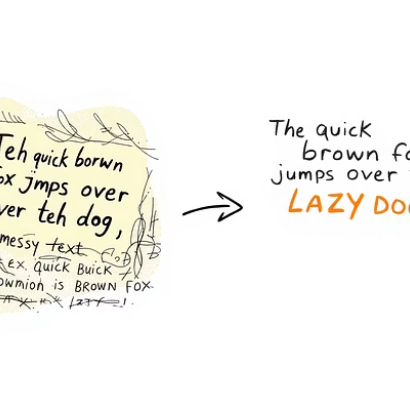 Teh quick borwn
ox jmps over
ver teh dog,
messy text
EX. QUICK BUICK
owmion is BROWN FOX.
The quick
brown fo
jumps over
LAZY DO